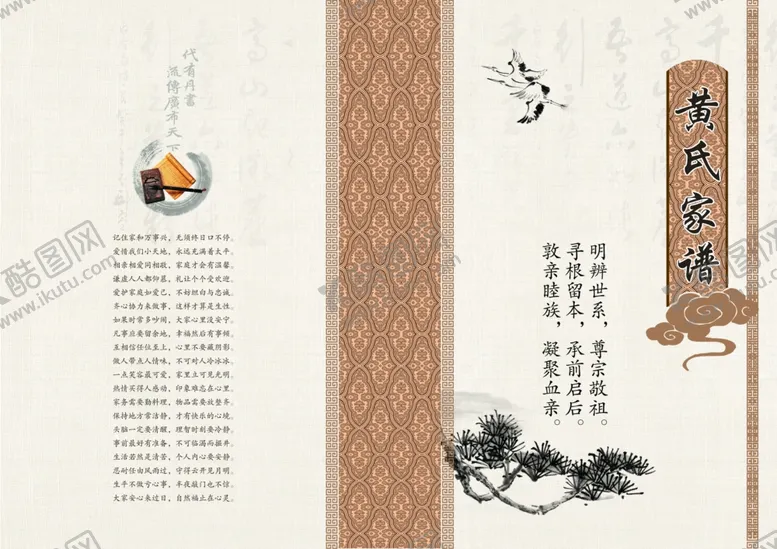 黄氏家谱
明辨世系，尊宗敬祖。
寻根留本，承前启后。
敦亲睦族，凝聚血亲。
代有丹書
流傳廣布天下
记住家和万事兴，无须终日口不停。
爱情我们小天地，永远充满着太平。
相亲相爱同相敬，家庭才会有温馨。
谦虚人人都仰慕，礼让个个受欢迎。
爱护家庭如爱己，不好坦白与忠诚。
齐心协力来做事，这样才算是生性。
如果时常多吵闹，大家心里没安宁。
凡事应要留余地，幸福然后有事倾。
互相信任位至上，心里不要藏阴影。
做人带点人情味，不可对人冷冰冰。
一点笑容最可爱，家里立可见光明。
热情买得人感动，印象难忘在心里。
家务需要勤料理，物品需要放整齐。
保持地方常洁静，才有快乐的心境。
头脑一定要清醒，理智时刻要冷静。
事前最好有准备，不可临渴而掘井。
生活若然是清苦，个人内心要安静。
忍耐任由风雨过，守得云开见月明。
生平不做亏心事，半夜敲门也不惊。
大家安心来过日，自然福止在心灵。
酷图网
www.ikutu.com